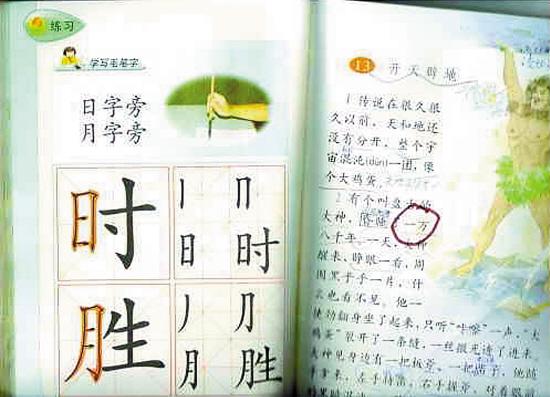 练习
学写毛笔字
日字旁
月字旁
时
丨 冂
日 时
胜
丿 刀
月 胜
13 开天辟地
1 传说在很久很
久以前，天和地还
没有分开，整个宇
宙混沌(dùn)一团，像
个大鸡蛋，
2 有个叫盘古的
大神，昏睡了一万
八千年。一天，大神
醒来，睁眼一看，周
围黑乎乎一片，什
么也看不见。他一
使劲翻身坐了起来，只听“咔嚓”一声，“大
鸡蛋”裂开了一条缝，一丝微光透了进来。
大神见身边有一把板斧，一把凿子，他随
手拿来，左手持凿，右手握斧，对着眼前